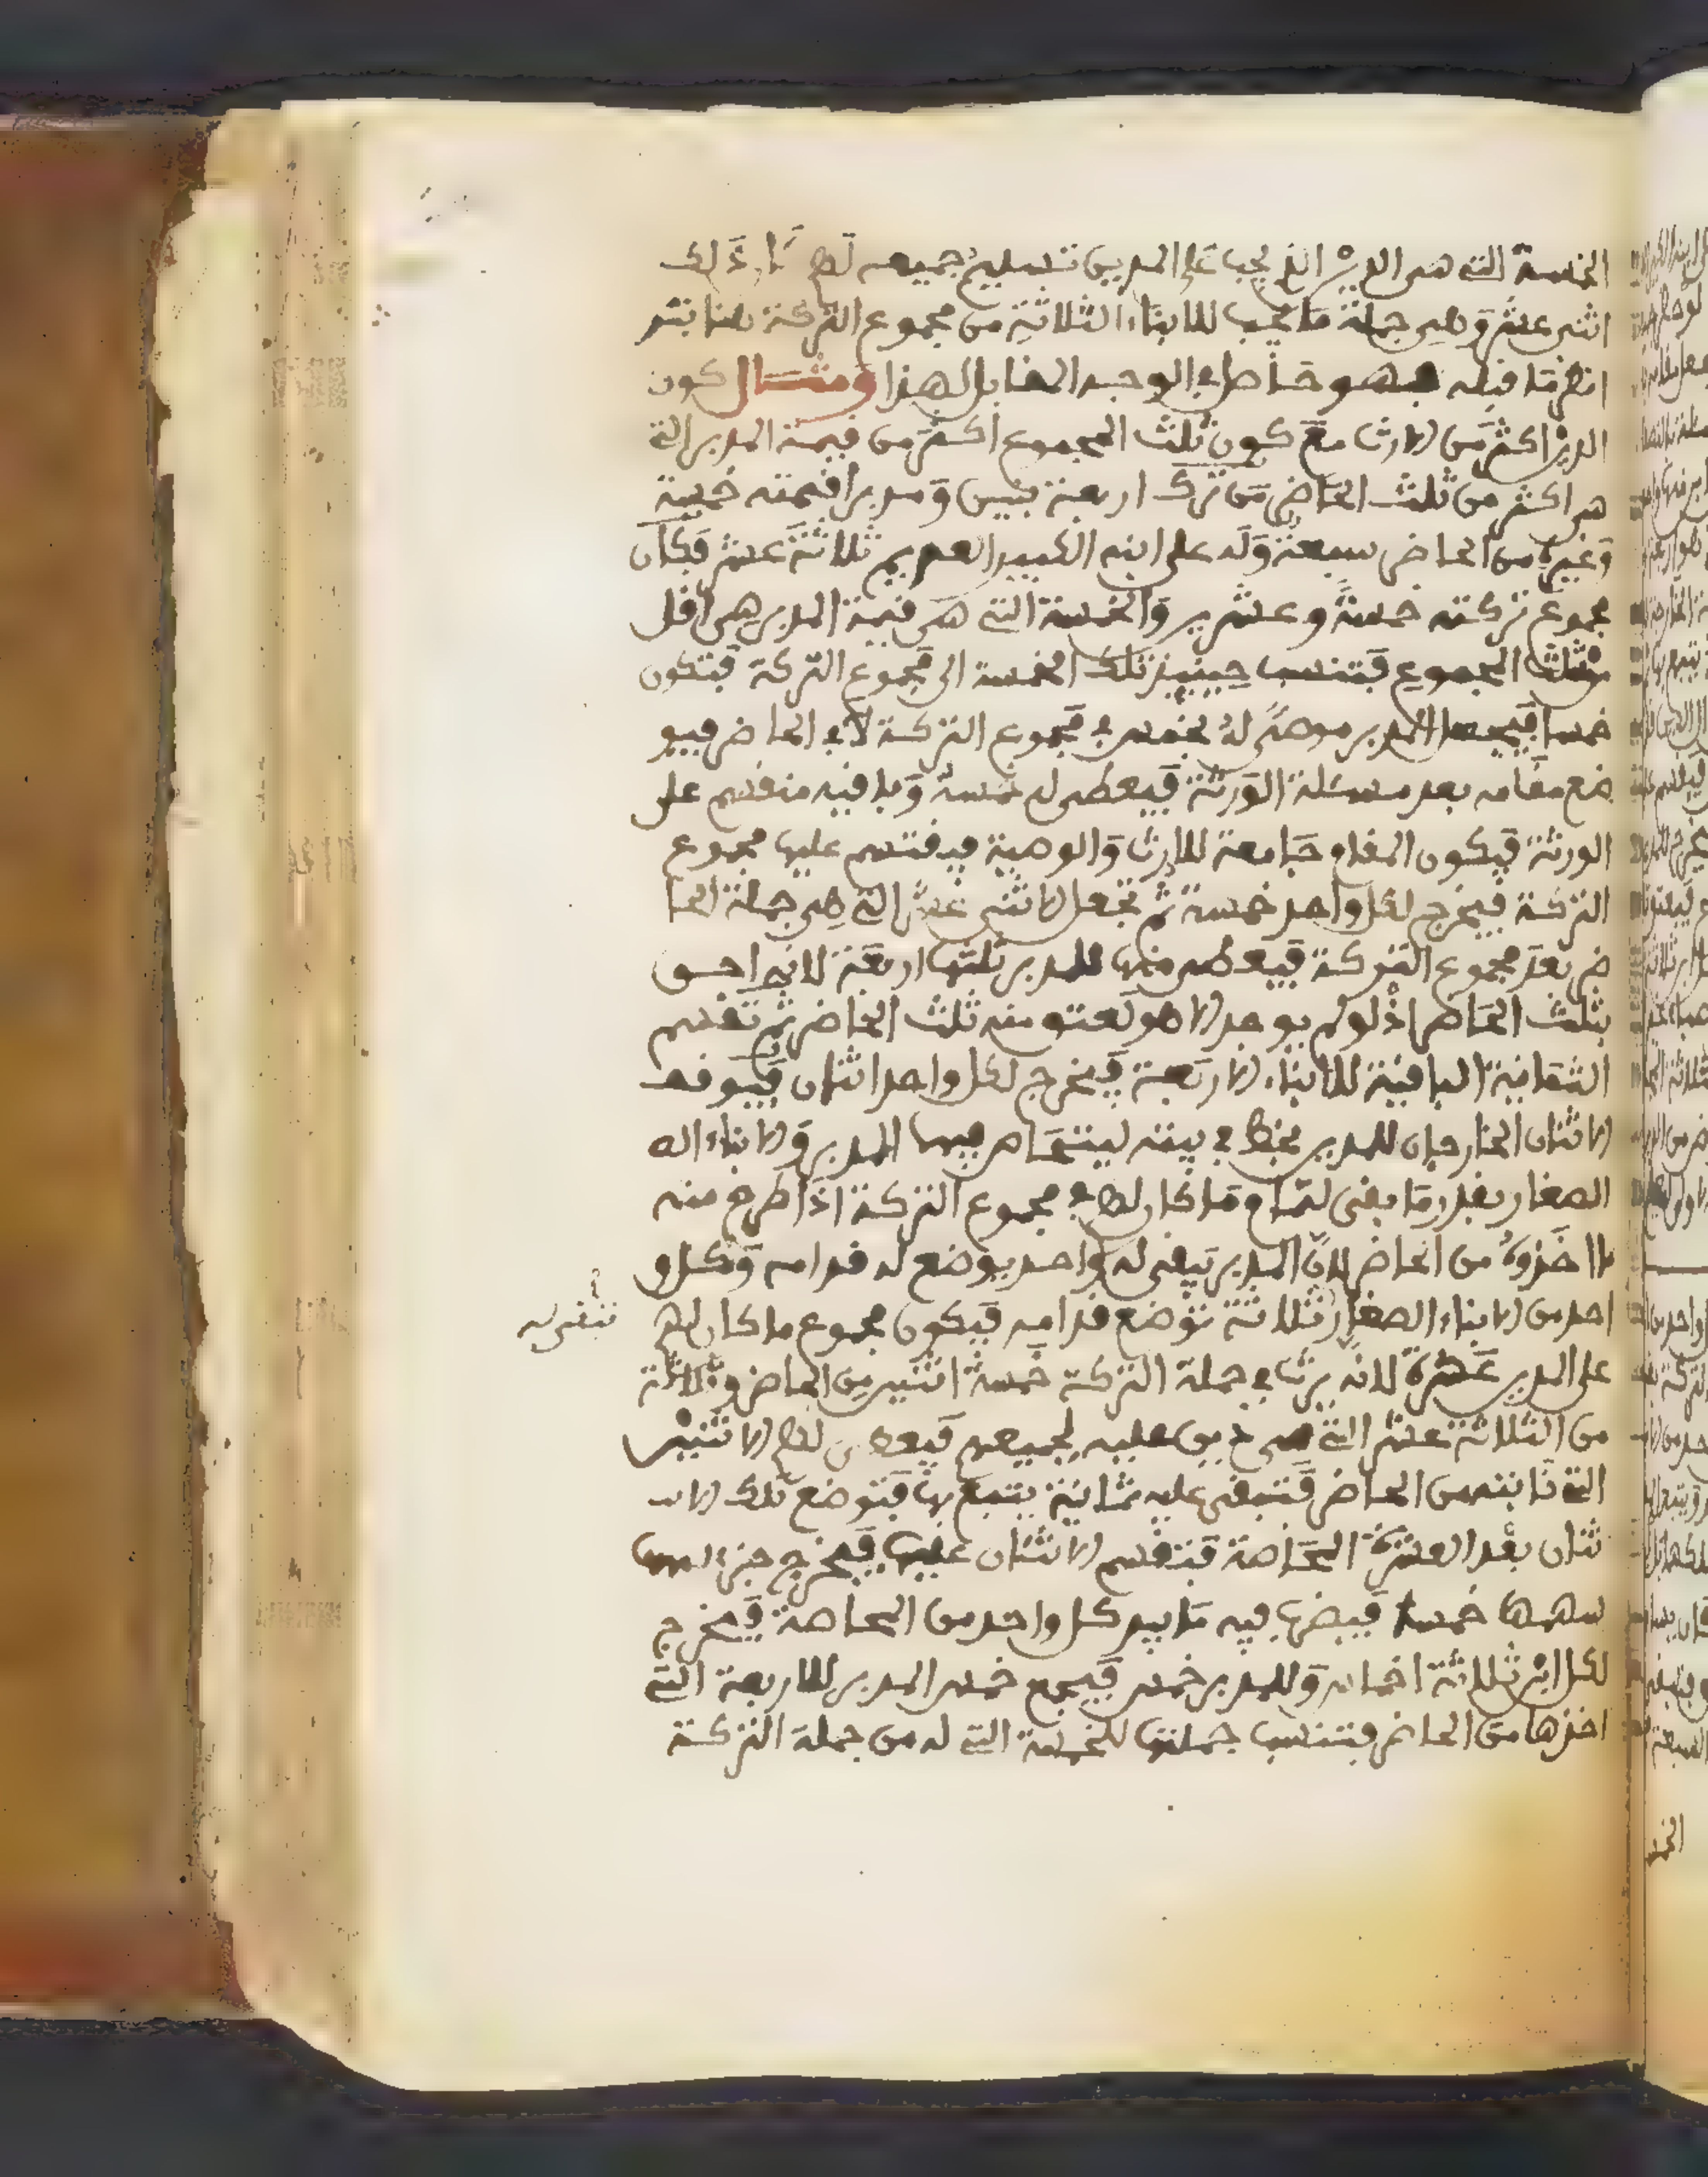 الخمسة التي هي الدين الذي يجب على المدين تسليم جميعه لهم ذلك
اثني عشر وهي جملة ما يجب للابناء الثلاثة من مجموع التركة
انظر ما قبله فهو خاطئ الوجه المقابل لهذا ومثال كون
الدين اكثر من الارث مع كون ثلث المجموع اكثر من قيمة المدبر التي
هي اكثر من ثلث الحاضر من ترك اربعة بنين ومدبرا قيمته خمسة
وغيره من الحاضر سبعة وله على ابنه الكبير العديم ثلاثة عشر فكان
مجموع تركته خمسة وعشرين والخمسة التي هي قيمة المدبر هي اقل
من ثلث المجموع فتنسب حينئذ تلك الخمسة الى مجموع التركة فتكون
خمسا فيجعل المدبر موصى له بخمس في مجموع التركة لا في الحاضر فيو
ضع مقامه بعد مسئلة الورثة فيعطى له خمسه وباقيه منقسم على
الورثة فيكون المقام جامعة للارث والوصية فيقتسم عليها مجموع
التركة فيخرج لكل واحد خمسة ثم تجعل الاثني عشر التي هي جملة الحا
ضر بعد مجموع التركة فيعطى منها للمدبر ثلثها اربعة لانه احق
بثلث الحاضر اذ لو لم يوجد الا هو لعتق منه ثلث الحاضر ثم تقسم
الثمانية الباقية للابناء الاربعة فيخرج لكل واحد اثنان فيوقف
الاثنان الخارجان للمدين بخط في بيته ليتحاصر فيها المدبر والابناء
الصغار بقدر ما بقي لتمام ما كان لهم في مجموع التركة اذا طرح منه
ما اخذوه من الحاضر لان المدبر بقي له واحد يوضع له قدامه وكل و
احد من الابناء الصغار ثلاثة توضع قدامه فيكون مجموع ما كان لهم
تبقى له
على المدين عشرة لانه يرث في جملة التركة خمسة اثنين من الحاضر وثلاثة
من الثلاثة عشر التي هي دين عليه لجميعهم فيعطى لهم الاثنين
التي نابته من الحاضر فتبقى عليه ثمانية يتبع بها فتوضع تلك الا
ثنان بعد العشرة المحاصة فتقسم الاثنان عليها فيخرج جزء
سهمها خمسا فيضرب فيه ما بيد كل واحد من المحاصة فيخرج
لكل ابن ثلاثة اخماس وللمدبر خمس فيجمع خمس المدبر للاربعة التي
اخذها من الحاضر فتنسب جملتها للخمسة التي له من جملة التركة